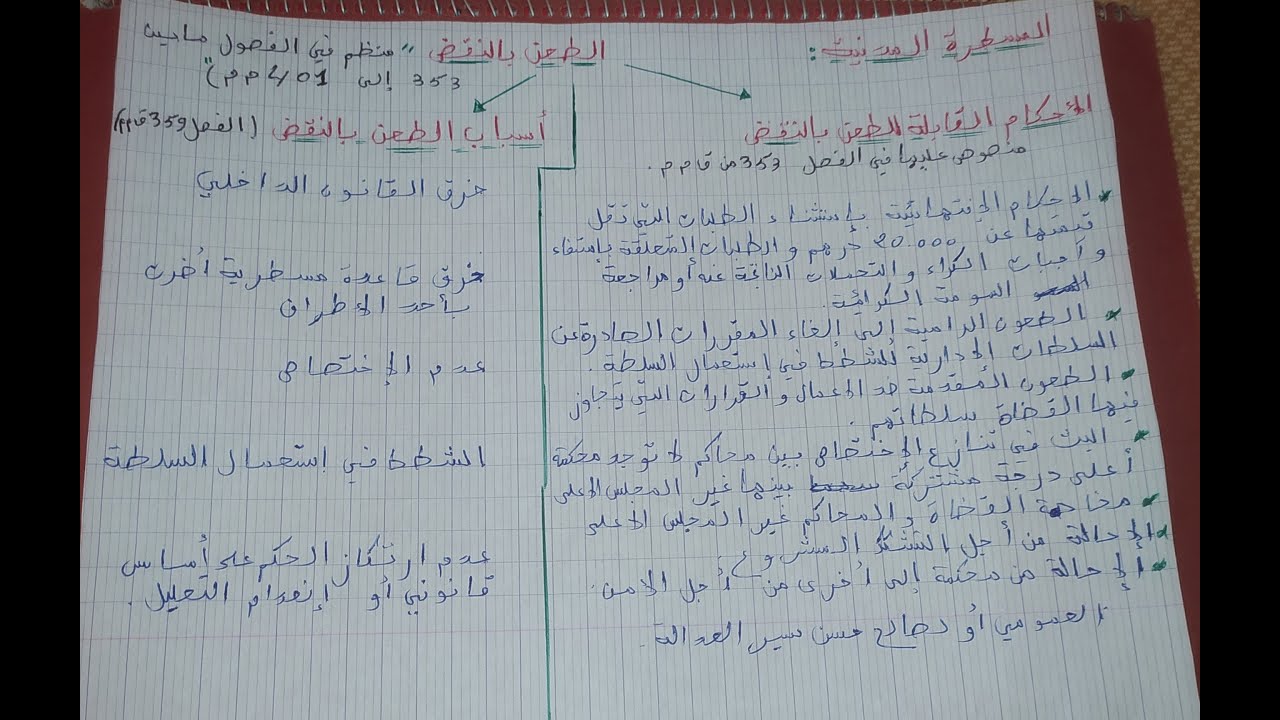 المسطرة المدنية:
الطعن بالنقض "منظم في الفصول ما بين
353 إلى 401 م م"
الأحكام القابلة للطعن بالنقض
منصوص عليها في الفصل 353 من ق م م.
الاحكام الإنتهائية بإستثناء الطلبات التي تقل
قيمتها عن 20.000 درهم والطلبات المتعلقة بإستفاء
واجبات الكراء والتحملات الناتجة عنه أو مراجعة
السومة الكرائية.
الطعون الرامية إلى إلغاء المقررات الصادرة عن
السلطات الإدارية للشطط في إستعمال السلطة.
الطعون المقدمة ضد الاعمال والقرارات التي يتجاوز
فيها القضاة سلطاتهم.
البث في تنازع الإختصاص بين محاكم لا توجد محكمة
أعلى درجة مشتركة بينها غير المجلس الاعلى
مخاصمة القضاة والمحاكم غير المجلس الاعلى
الإحالة من أجل التشكك المشروع
الإحالة من محكمة إلى أخرى من أجل الامن
العمومي أو لصالح حسن سير العدالة.
أسباب الطعن بالنقض (الفصل 359 ق م م)
خرق القانون الداخلي
خرق قاعدة مسطرية أضرت
بأحد الاطراف
عدم الإختصاص
الشطط في إستعمال السلطة
عدم ارتكاز الحكم على أساس
قانوني أو إنعدام التعليل.